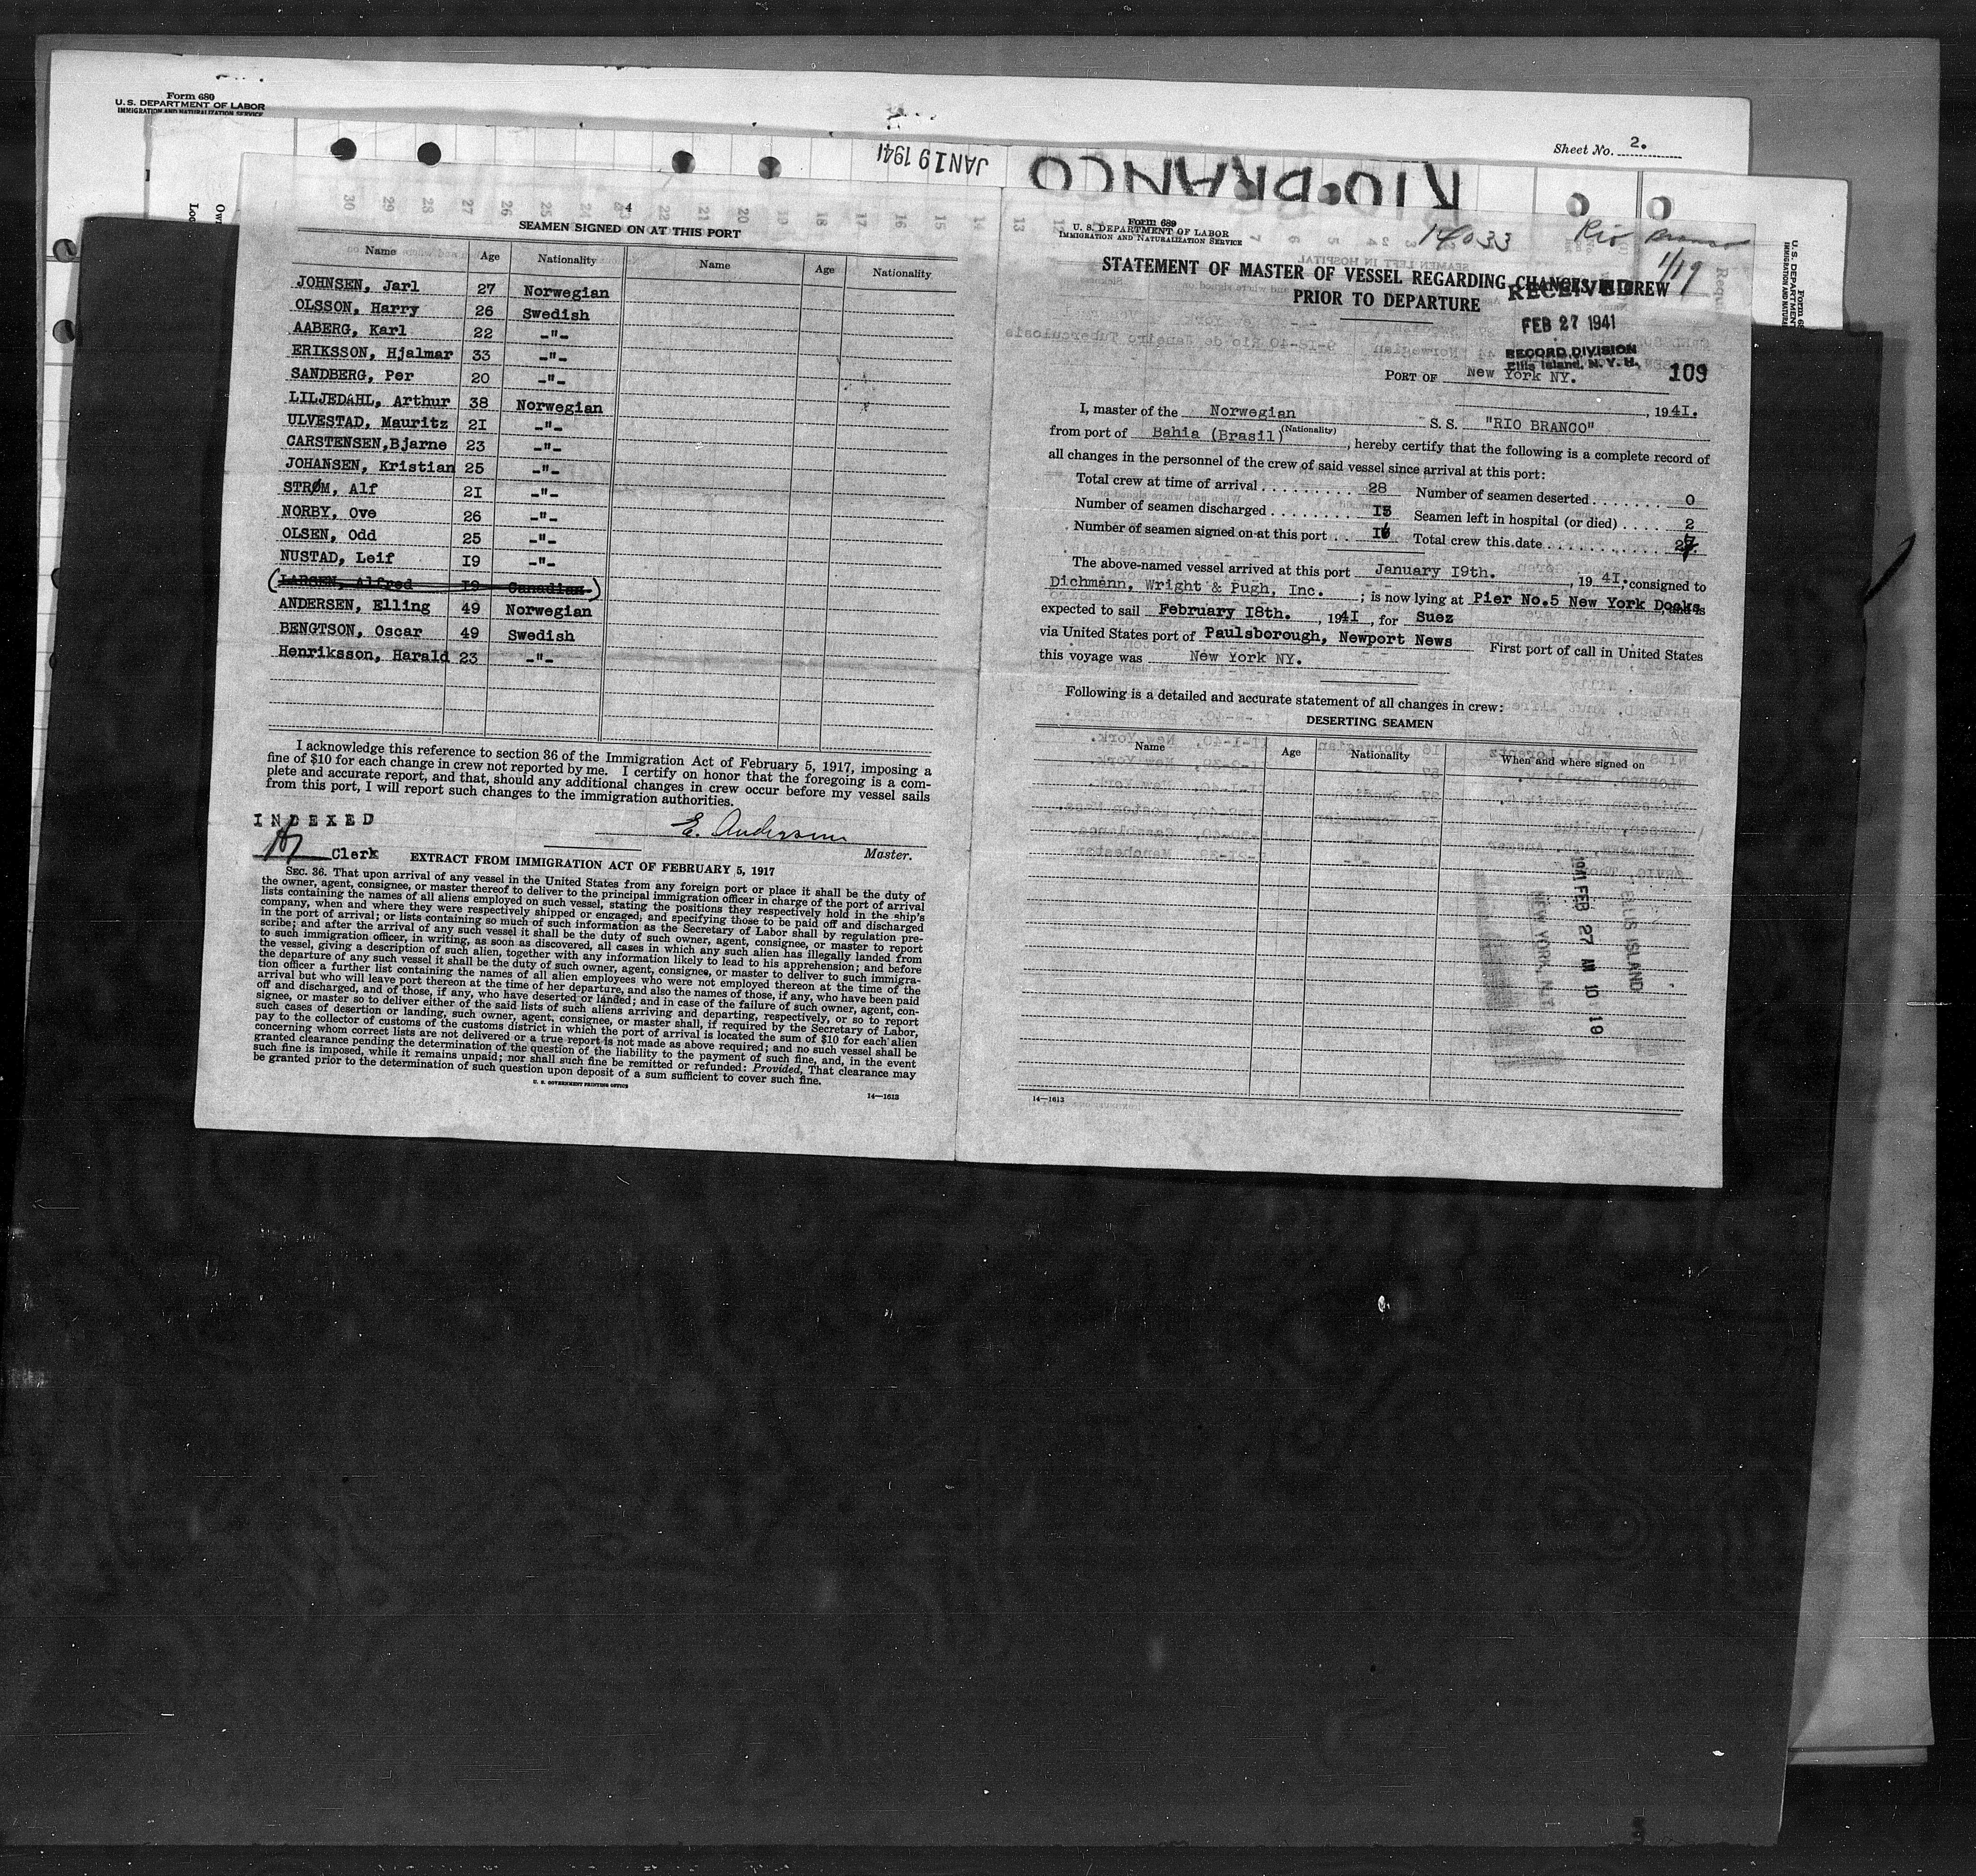 Form 680
U.S. DEPARTMENT OF LABOR
IMMIGRATION AND NATURALIZATION SERVICE
Sheet No. 2.
JAN 19 1941
RIO BRANCO
4
SEAMEN SIGNED ON AT THIS PORT
Name Age Nationality Name Age Nationality
JOHNSEN, Jarl 27 Norwegian
OLSSON, Harry 26 Swedish
AABERG, Karl 22 -"-
ERIKSSON, Hjalmar 33 -"-
SANDBERG, Per 20 -"-
LILJEDAHL, Arthur 38 Norwegian
ULVESTAD, Mauritz 21 -"-
CARSTENSEN,Bjarne 23 -"-
JOHANSEN, Kristian 25 -"-
STRØM, Alf 21 -"-
NORBY, Ove 26 -"-
OLSEN, Odd 25 -"-
NUSTAD, Leif 19 -"-
(LARSEN, Alfred 19 Canadian)
ANDERSEN, Elling 49 Norwegian
BENGTSON, Oscar 49 Swedish
Henriksson, Harald 23 -"-
I acknowledge this reference to section 36 of the Immigration Act of February 5, 1917, imposing a
fine of $10 for each change in crew not reported by me. I certify on honor that the foregoing is a com-
plete and accurate report, and that, should any additional changes in crew occur before my vessel sails
from this port, I will report such changes to the immigration authorities.
INDEXED
E. Andersen
Clerk
Master.
EXTRACT FROM IMMIGRATION ACT OF FEBRUARY 5, 1917
SEC. 36. That upon arrival of any vessel in the United States from any foreign port or place it shall be the duty of
the owner, agent, consignee, or master thereof to deliver to the principal immigration officer in charge of the port of arrival
lists containing the names of all aliens employed on such vessel, stating the positions they respectively hold in the ship's
company, when and where they were respectively shipped or engaged, and specifying those to be paid off and discharged
in the port of arrival; or lists containing so much of such information as the Secretary of Labor shall by regulation pre-
scribe; and after the arrival of any such vessel it shall be the duty of such owner, agent, consignee, or master to report
to such immigration officer, in writing, as soon as discovered, all cases in which any such alien has illegally landed from
the vessel, giving a description of such alien, together with any information likely to lead to his apprehension; and before
the departure of any such vessel it shall be the duty of such owner, agent, consignee, or master to deliver to such immigra-
tion officer a further list containing the names of all alien employees who were not employed thereon at the time of the
arrival but who will leave port thereon at the time of her departure, and also the names of those, if any, who have been paid
off and discharged, and of those, if any, who have deserted or landed; and in case of the failure of such owner, agent, con-
signee, or master so to deliver either of the said lists of such aliens arriving and departing, respectively, or so to report
such cases of desertion or landing, such owner, agent, consignee, or master shall, if required by the Secretary of Labor,
pay to the collector of customs of the customs district in which the port of arrival is located the sum of $10 for each alien
concerning whom correct lists are not delivered or a true report is not made as above required; and no such vessel shall be
granted clearance pending the determination of the question of the liability to the payment of such fine, and, in the event
such fine is imposed, while it remains unpaid; nor shall such fine be remitted or refunded: Provided, That clearance may
be granted prior to the determination of such question upon deposit of a sum sufficient to cover such fine.
U. S. GOVERNMENT PRINTING OFFICE
14—1613
Form 689
U. S. DEPARTMENT OF LABOR
IMMIGRATION AND NATURALIZATION SERVICE
14033
Rio Branco
1/19
STATEMENT OF MASTER OF VESSEL REGARDING CHANGES IN CREW
PRIOR TO DEPARTURE
RECEIVED
FEB 27 1941
RECORD DIVISION
Ellis Island, N. Y. H.
109
PORT OF New York NY.
, 1941.
I, master of the Norwegian S. S. "RIO BRANCO"
(Nationality)
from port of Bahia (Brasil), hereby certify that the following is a complete record of
all changes in the personnel of the crew of said vessel since arrival at this port:
Total crew at time of arrival 28 Number of seamen deserted 0
Number of seamen discharged 15 Seamen left in hospital (or died) 2
Number of seamen signed on at this port 16 Total crew this date 27
The above-named vessel arrived at this port January 19th., 1941. consigned to
Dichmann, Wright & Pugh, Inc.; is now lying at Pier No.5 New York Docks, and is
expected to sail February 18th., 1941, for Suez
via United States port of Paulsborough, Newport News First port of call in United States
this voyage was New York NY.
Following is a detailed and accurate statement of all changes in crew:
DESERTING SEAMEN
Name Age Nationality When and where signed on
1941 FEB 27 AM 10 19
ELLIS ISLAND
NEW YORK, N.Y.
14—1613